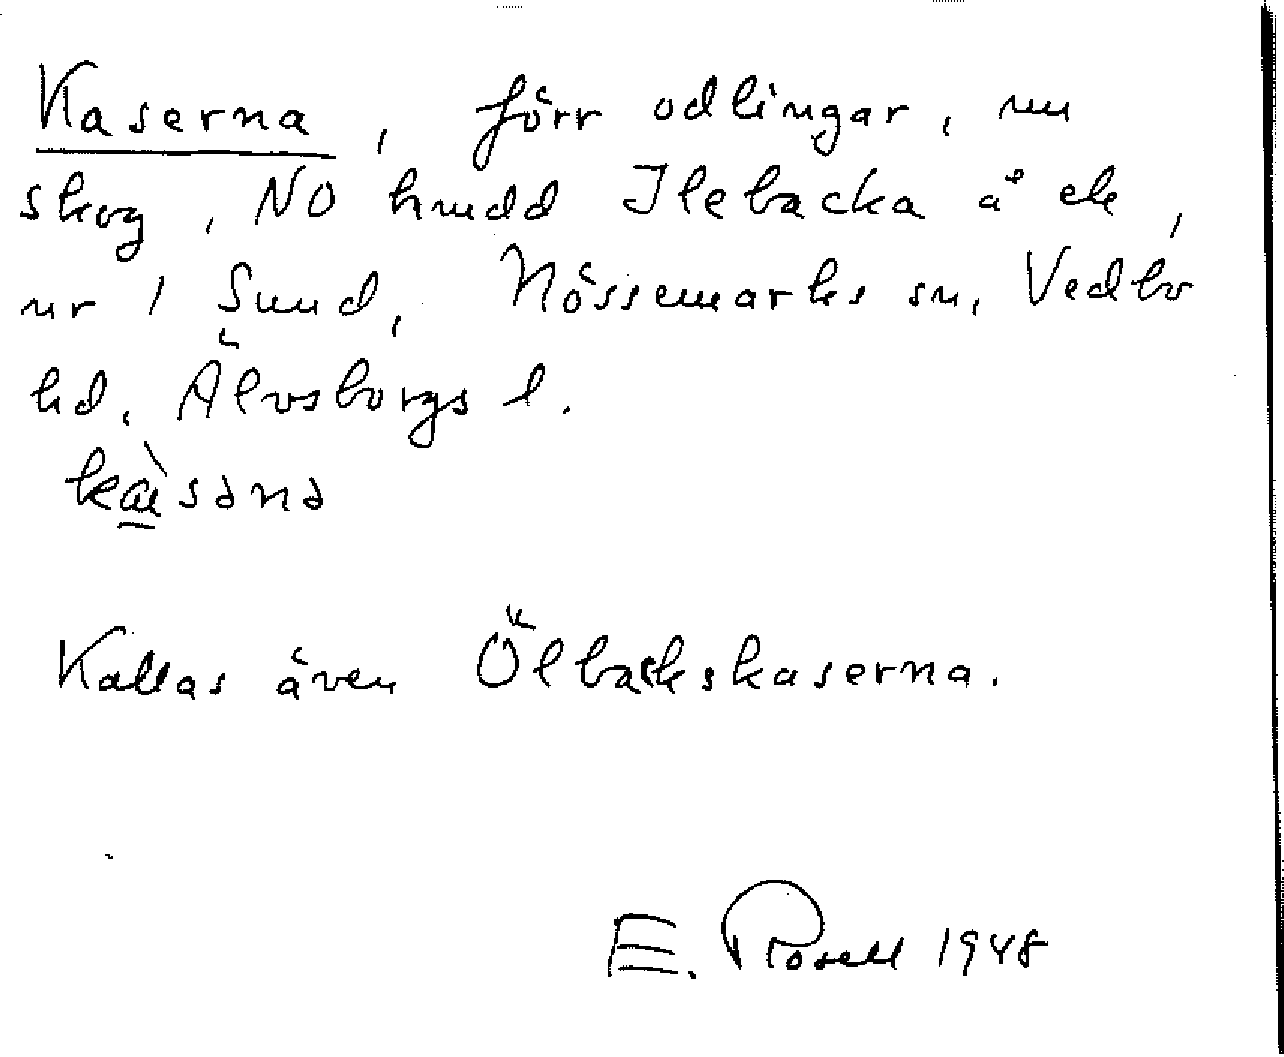 Kaserna, förr odlingar, nu
skog, NO Ilebacka å ek,
nr 1 Sund, Nössemarks sn, Vedbo
hd, Älvsborgs l.
Kallas även Ölbackskaserna.
E. Rosell 1948